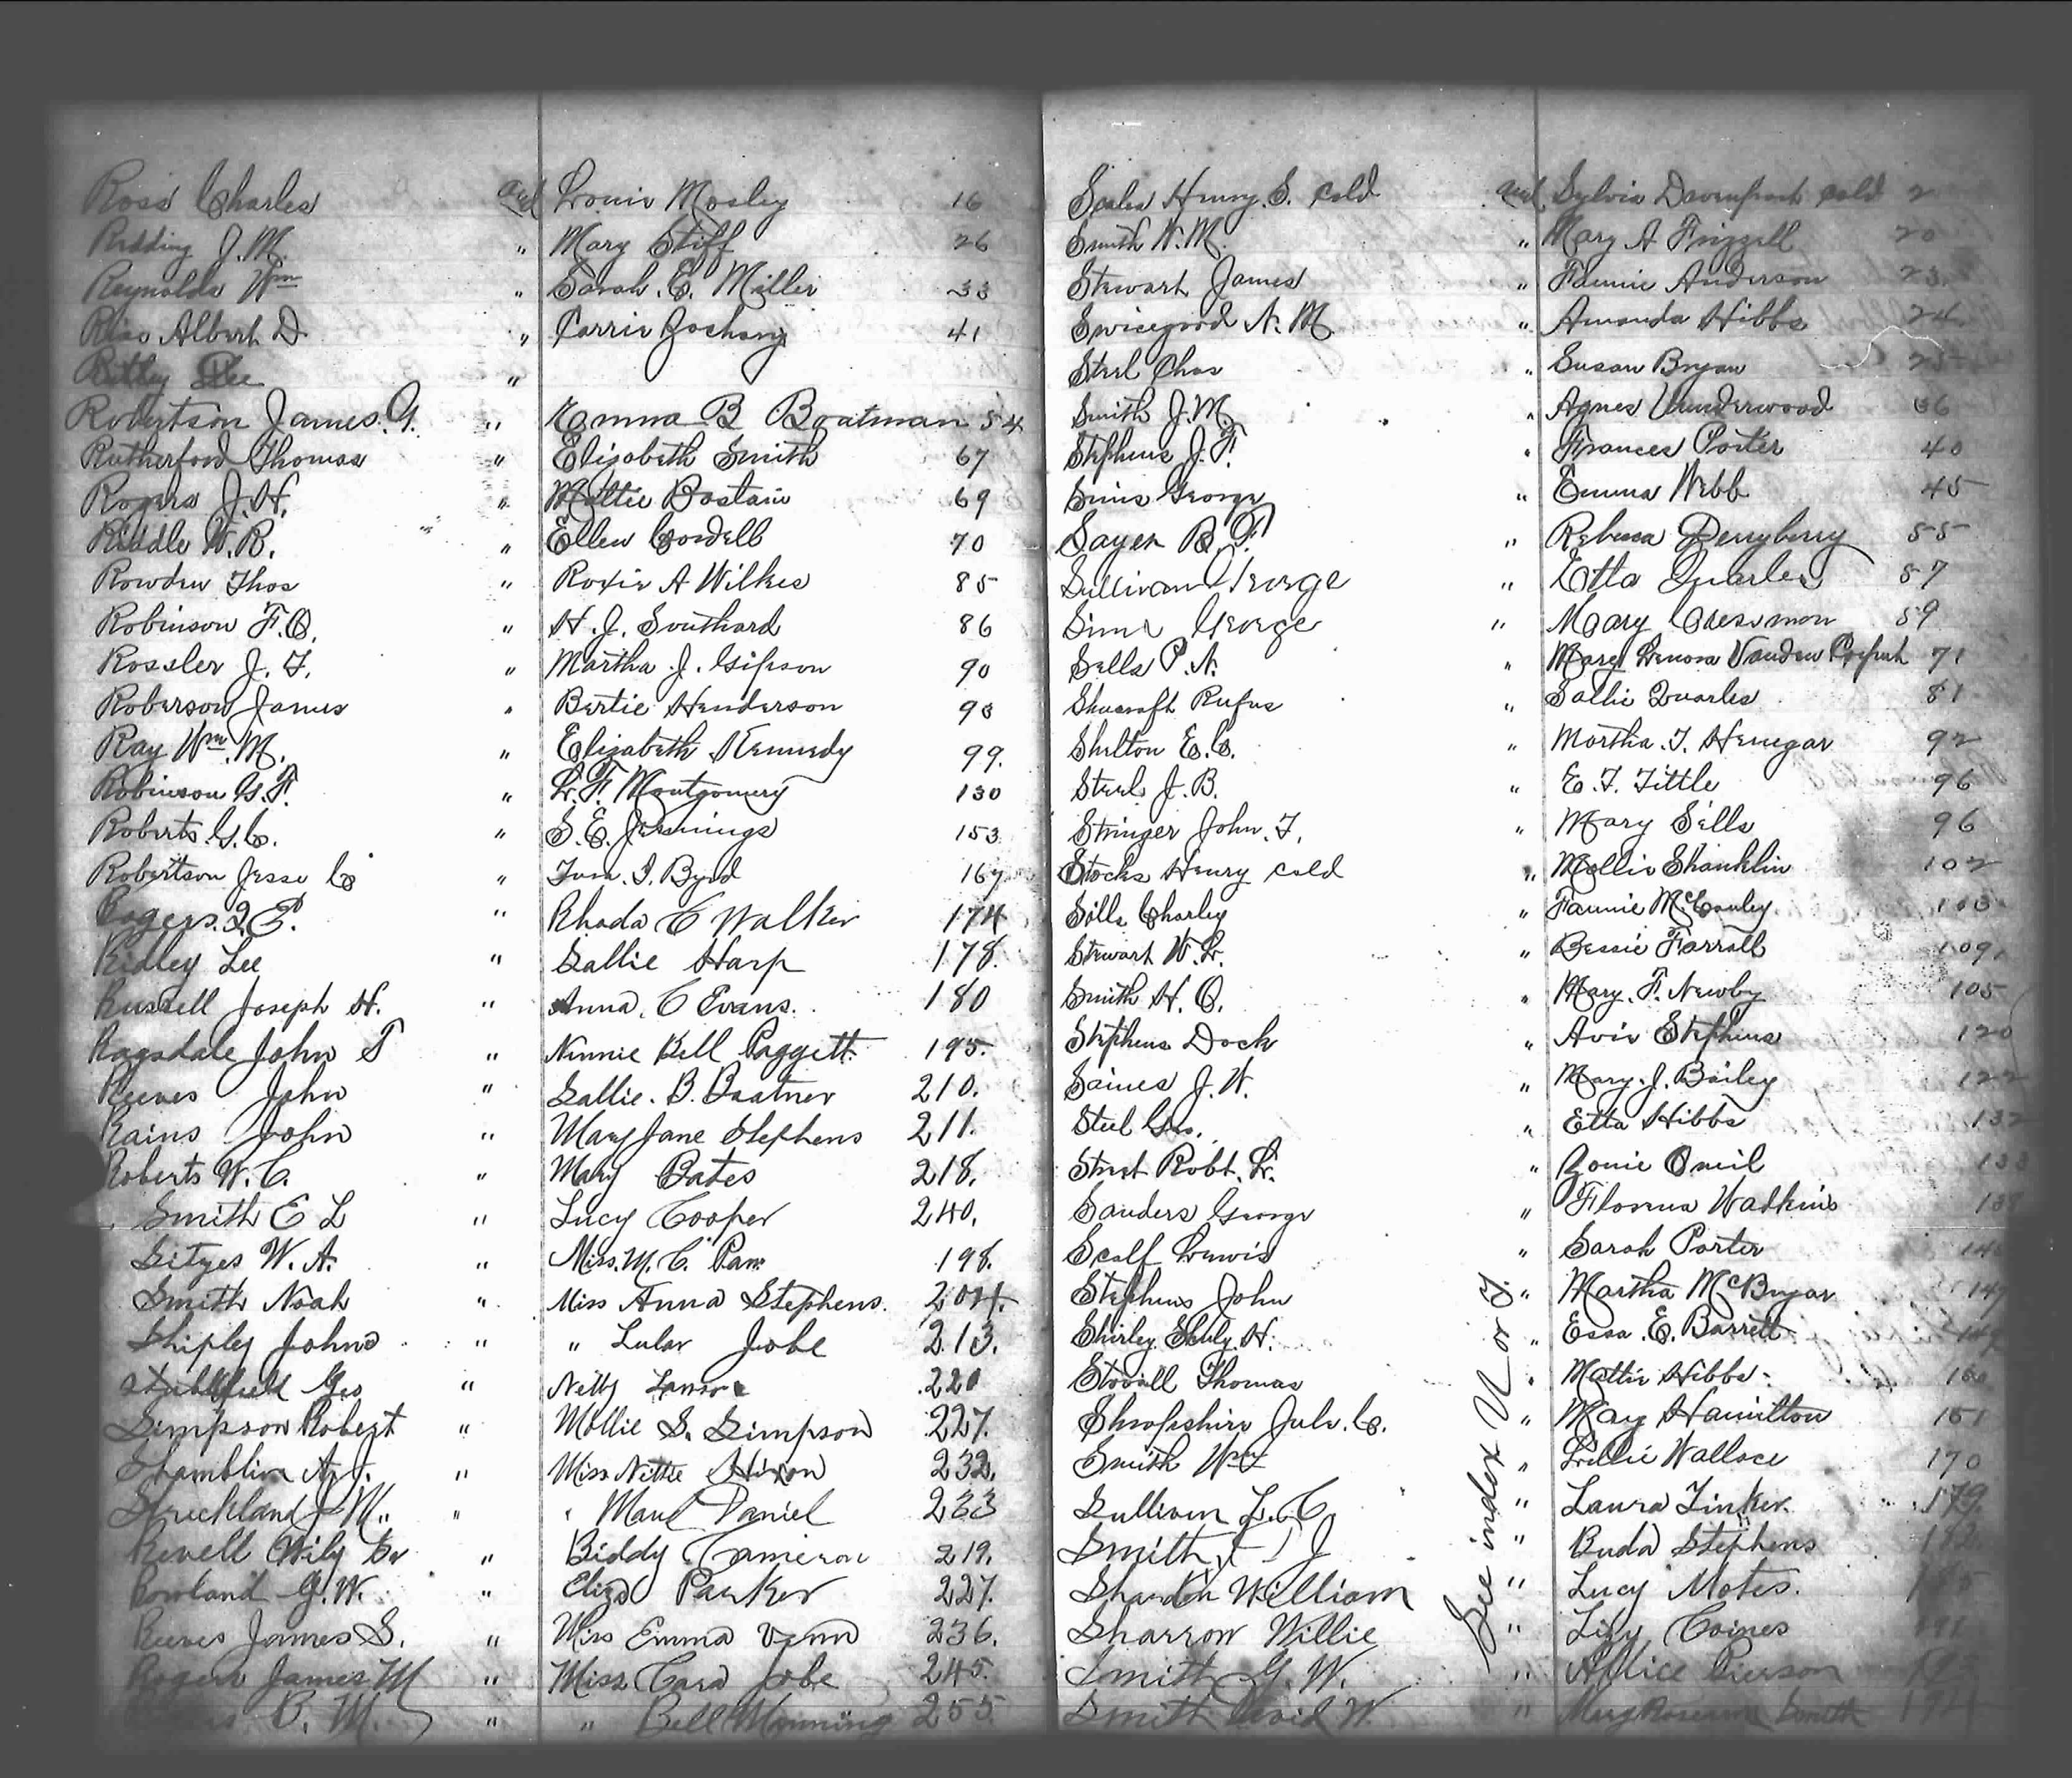 Ross Charles and Louie Mosley 16
Redding J.M. " Mary Stiff 26
Reynolds Wm " Sarah E. Miller 33
Rise Albert D. " Carrie Zachary 41
Lee "
Robertson James. " Emma B Boatman 54
Rutherford Thomas " Elizabeth Smith 67
Rogers J.H. " Mattie Bostain 69
Riddle W.R. " Ellen Cordell 70
Rowden Thos " Roxie A Wilkes 85
Robinson F.O. " H.J. Southard 86
Rossler J.F. " Martha J. Gipson 90
Roberson James " Bertie Henderson 93
Ray Wm. M. " Elizabeth Kennedy 99.
Robinson G.F. " L.F. Montgomery 130
Roberts G.C. " S.E. Jennings 153
Robertson Jesse C " Byrd 167
Rogers. " Rhoda C Walker 174
Ridley Lee " Sallie Harp 178.
Russell Joseph H. " Anna. C Evans. 180
Ragsdale John T " Ninnie Bell Paggett 195.
Reeves John " Sallie. B. 210.
Rains John " Mary Jane Stephens 211.
Roberts W.C. " Mary Bates 218.
Smith E L " Lucy Cooper 240.
W.A. " Miss. M.C. 198.
Smith Noah " Miss Anna Stephens. 204.
Shipley John " " Lular Jobe 213.
Stubblefield Geo " Netty 220
Simpson Robert " Mollie S. Simpson 227.
Shamblin A.J. " Miss Nettie Hixon 232.
Strickland J M. " " Maud Daniel 233
Revell Wily " Biddy Cameron 219.
Rowland G.W. " Eliza Parker 227.
Reeves James S. " Miss Emma Venn 236.
Rogers James M " Miss Cara Jobe 245.
B. M. " " Bell Manning 255.
Scales Henry. S. cold and Sylvia Davenport cold 2
Smith W.M. " Mary A Frizzell 20
Stewart James " Fannie Anderson 23.
Swicegood N.M. " Amanda Hibbs 24
Steel Chas " Susan Bryan 25
Smith J.M. " Agnes Vaunderwood 36
Stephens J.F. " Frances Porter 40
Sims George " Emma Webb 45
Sayer B.F. " Rebecca Derryberry 55
Sullivan George " Etta Quarles 57
Sims George " Mary Cressmon 59
Sells P.N. " Mary Lenora Vanden 71
Shucraft Rufus " Sallie Quarles 81
Shelton E.C. " Martha. J. Henegar 92
Steel J.B. " E.T. Tittle 96
Stringer John. F. " Mary Sells 96
Stocks Henry cold " Mollie Shanklin 102
Sills Charley " Fannie McCauley. 103
Stewart W.L. " Bessie Farrall 109.
Smith H.O. " Mary. F. Newby 105
Stephens Dock " Avie Stephens 120
Saines J.W. " Mary. J. Bailey 122
Steel Geo. " Etta Hibbs 132
Street Robt. L. " Zonie Oneil 133
Sanders George " Florena Watkins
Scalf Lewis " Sarah Porter
Stephens John " Martha McBryar 147
Shirley H. " Essa. E. Barrett
Stovall Thomas " Mattie Hibbs
Shropshire Jule. C. " May Hamilton 151
Smith Wm " Lillie Wallace 170
Sullivan L.C. " Laura Tinker. 179.
Smith J " Buda Stephens 182
William " Lucy Motes.
Sharrow Willie " Lizy Coines 191
Smith G.W. " Allice Pierson
Smith David W. " Mary Smith
See index N or T.